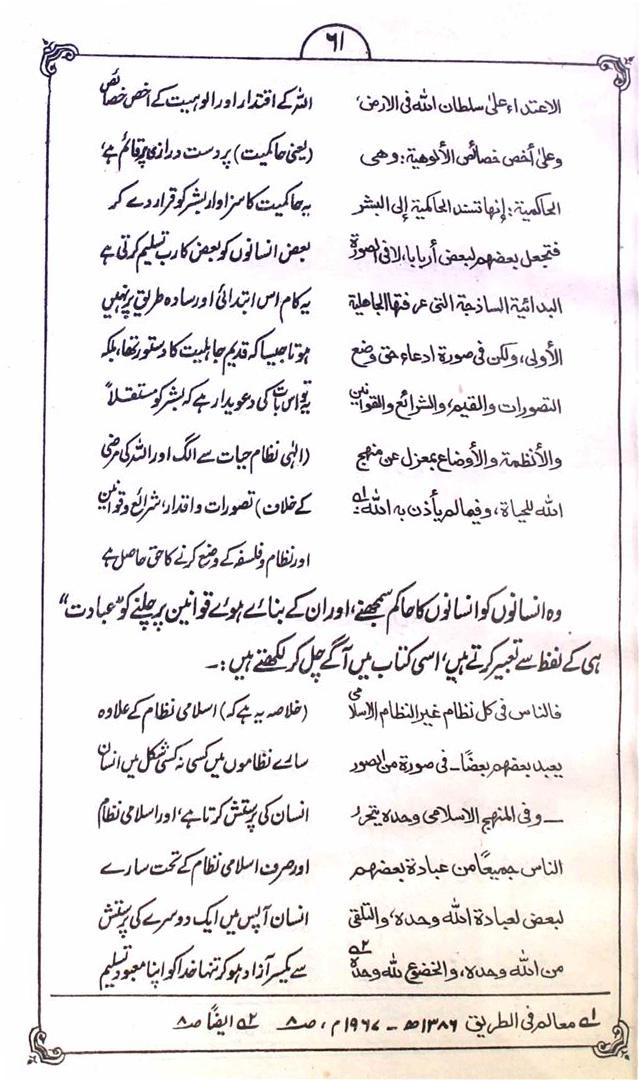 ٦١
الاعتداء على سلطان الله فى الارض،
وعلى أخص خصائص الألوهية: وهى
الحاكمية: إنها تسند الحاكمية إلى البشر
فتجعل بعضهم لبعض أربابا، لا فى الصورة
البدائية الساذجة التى عرفتها الجاهلية
الأولى، ولكن فى صورة ادعاء حق وضع
التصورات والقيم، والشرائع والقوانين
والأنظمة والأوضاع بمعزل عن منهج
الله للحياة، وفيما لم يأذن به الله ؎۱
اللہ کے اقتدار اور الوہیت کے اخص خصائص
(یعنی حاکمیت) پر دست درازی پر قائم ہے،
یہ حاکمیت کا سزاوار بشر کو قرار دے کر
بعض انسانوں کو بعض کا رب تسلیم کرتی ہے
یہ کام اس ابتدائی اور سادہ طریق پر نہیں
ہوتا جیسا کہ قدیم جاہلیت کا دستور تھا، بلکہ
یہ تو اس بات کی دعویدار ہے کہ بشر کو مستقلاً
(الٰہی نظام حیات سے الگ اور اللہ کی مرضی
کے خلاف) تصورات و اقدار، شرائع و قوانین
اور نظام و فلسفہ کے وضع کرنے کا حق حاصل ہے
وہ انسانوں کو انسانوں کا حاکم سمجھنے، اور ان کے بنائے ہوئے قوانین پر چلنے کو "عبادت"
ہی کے لفظ سے تعبیر کرتے ہیں، اسی کتاب میں آگے چل کر لکھتے ہیں :۔
فالناس فى كل نظام غير النظام الاسلامى
يعبد بعضهم بعضًا ــ فى صورة من الصور
ــ وفى المنهج الاسلامى وحده يتحرر
الناس جميعًا من عبادة بعضهم
لبعض لعبادة الله وحده، والتلقى
من الله وحده، والخضوع لله وحده ؎۲
(خلاصہ یہ ہے کہ) اسلامی نظام کے علاوہ
سارے نظاموں میں کسی نہ کسی شکل میں انسان
انسان کی پرستش کرتا ہے، اور اسلامی نظام
اور صرف اسلامی نظام کے تحت سارے
انسان آپس میں ایک دوسرے کی پرستش
سے یکسر آزاد ہو کر تنہا خدا کو اپنا معبود تسلیم
؎۱ معالم فی الطریق ۱۳۸۶ھ ــ ۱۹۶۷م، صـ۸ ؎۲ ایضاً صـ۸